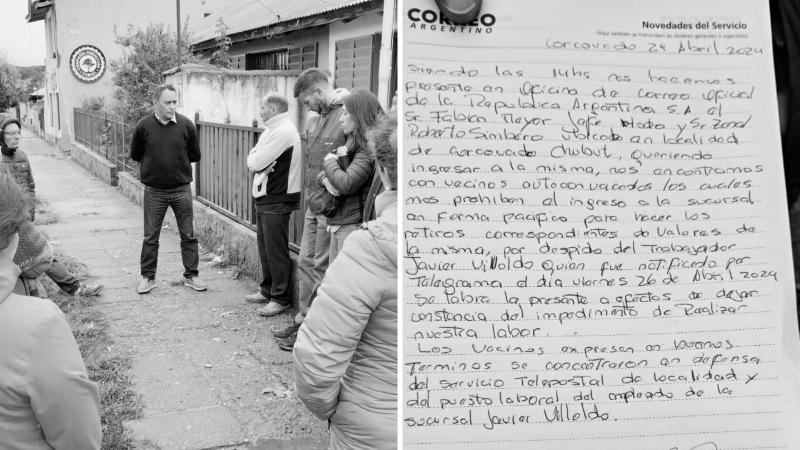 CORREO
ARGENTINO
Novedades del Servicio
(Aquí también se transcriben las órdenes generales o especiales)
Corcovado 29 Abril 2024
Siendo las 14hs nos hacemos
presente en Oficina de Correo Oficial
de la Republica Argentina S.A. el
Sr. Fabian Mayor Jefe Nodo y Sr Zonal
Roberto Simbero en localidad
de Corcovado Chubut, Queriendo
ingresar a la misma, nos encontramos
con vecinos autoconvocados los cuales
nos prohiben el ingreso a la sucursal
en forma pacifica para hacer los
retiros correspondientes de valores de
la misma, por despido del Trabajador
Javier Villoldo Quien fue notificado por
Telegrama el dia viernes 26 de Abril 2024
Se labra la presente a efectos de dejar
constancia del impedimento de Realizar
nuestra labor.
Los Vecinos expresan en buenos
Terminos se concentraron en defensa
del Servicio Telepostal de localidad y
del puesto laboral del empleado de la
sucursal Javier Villoldo.